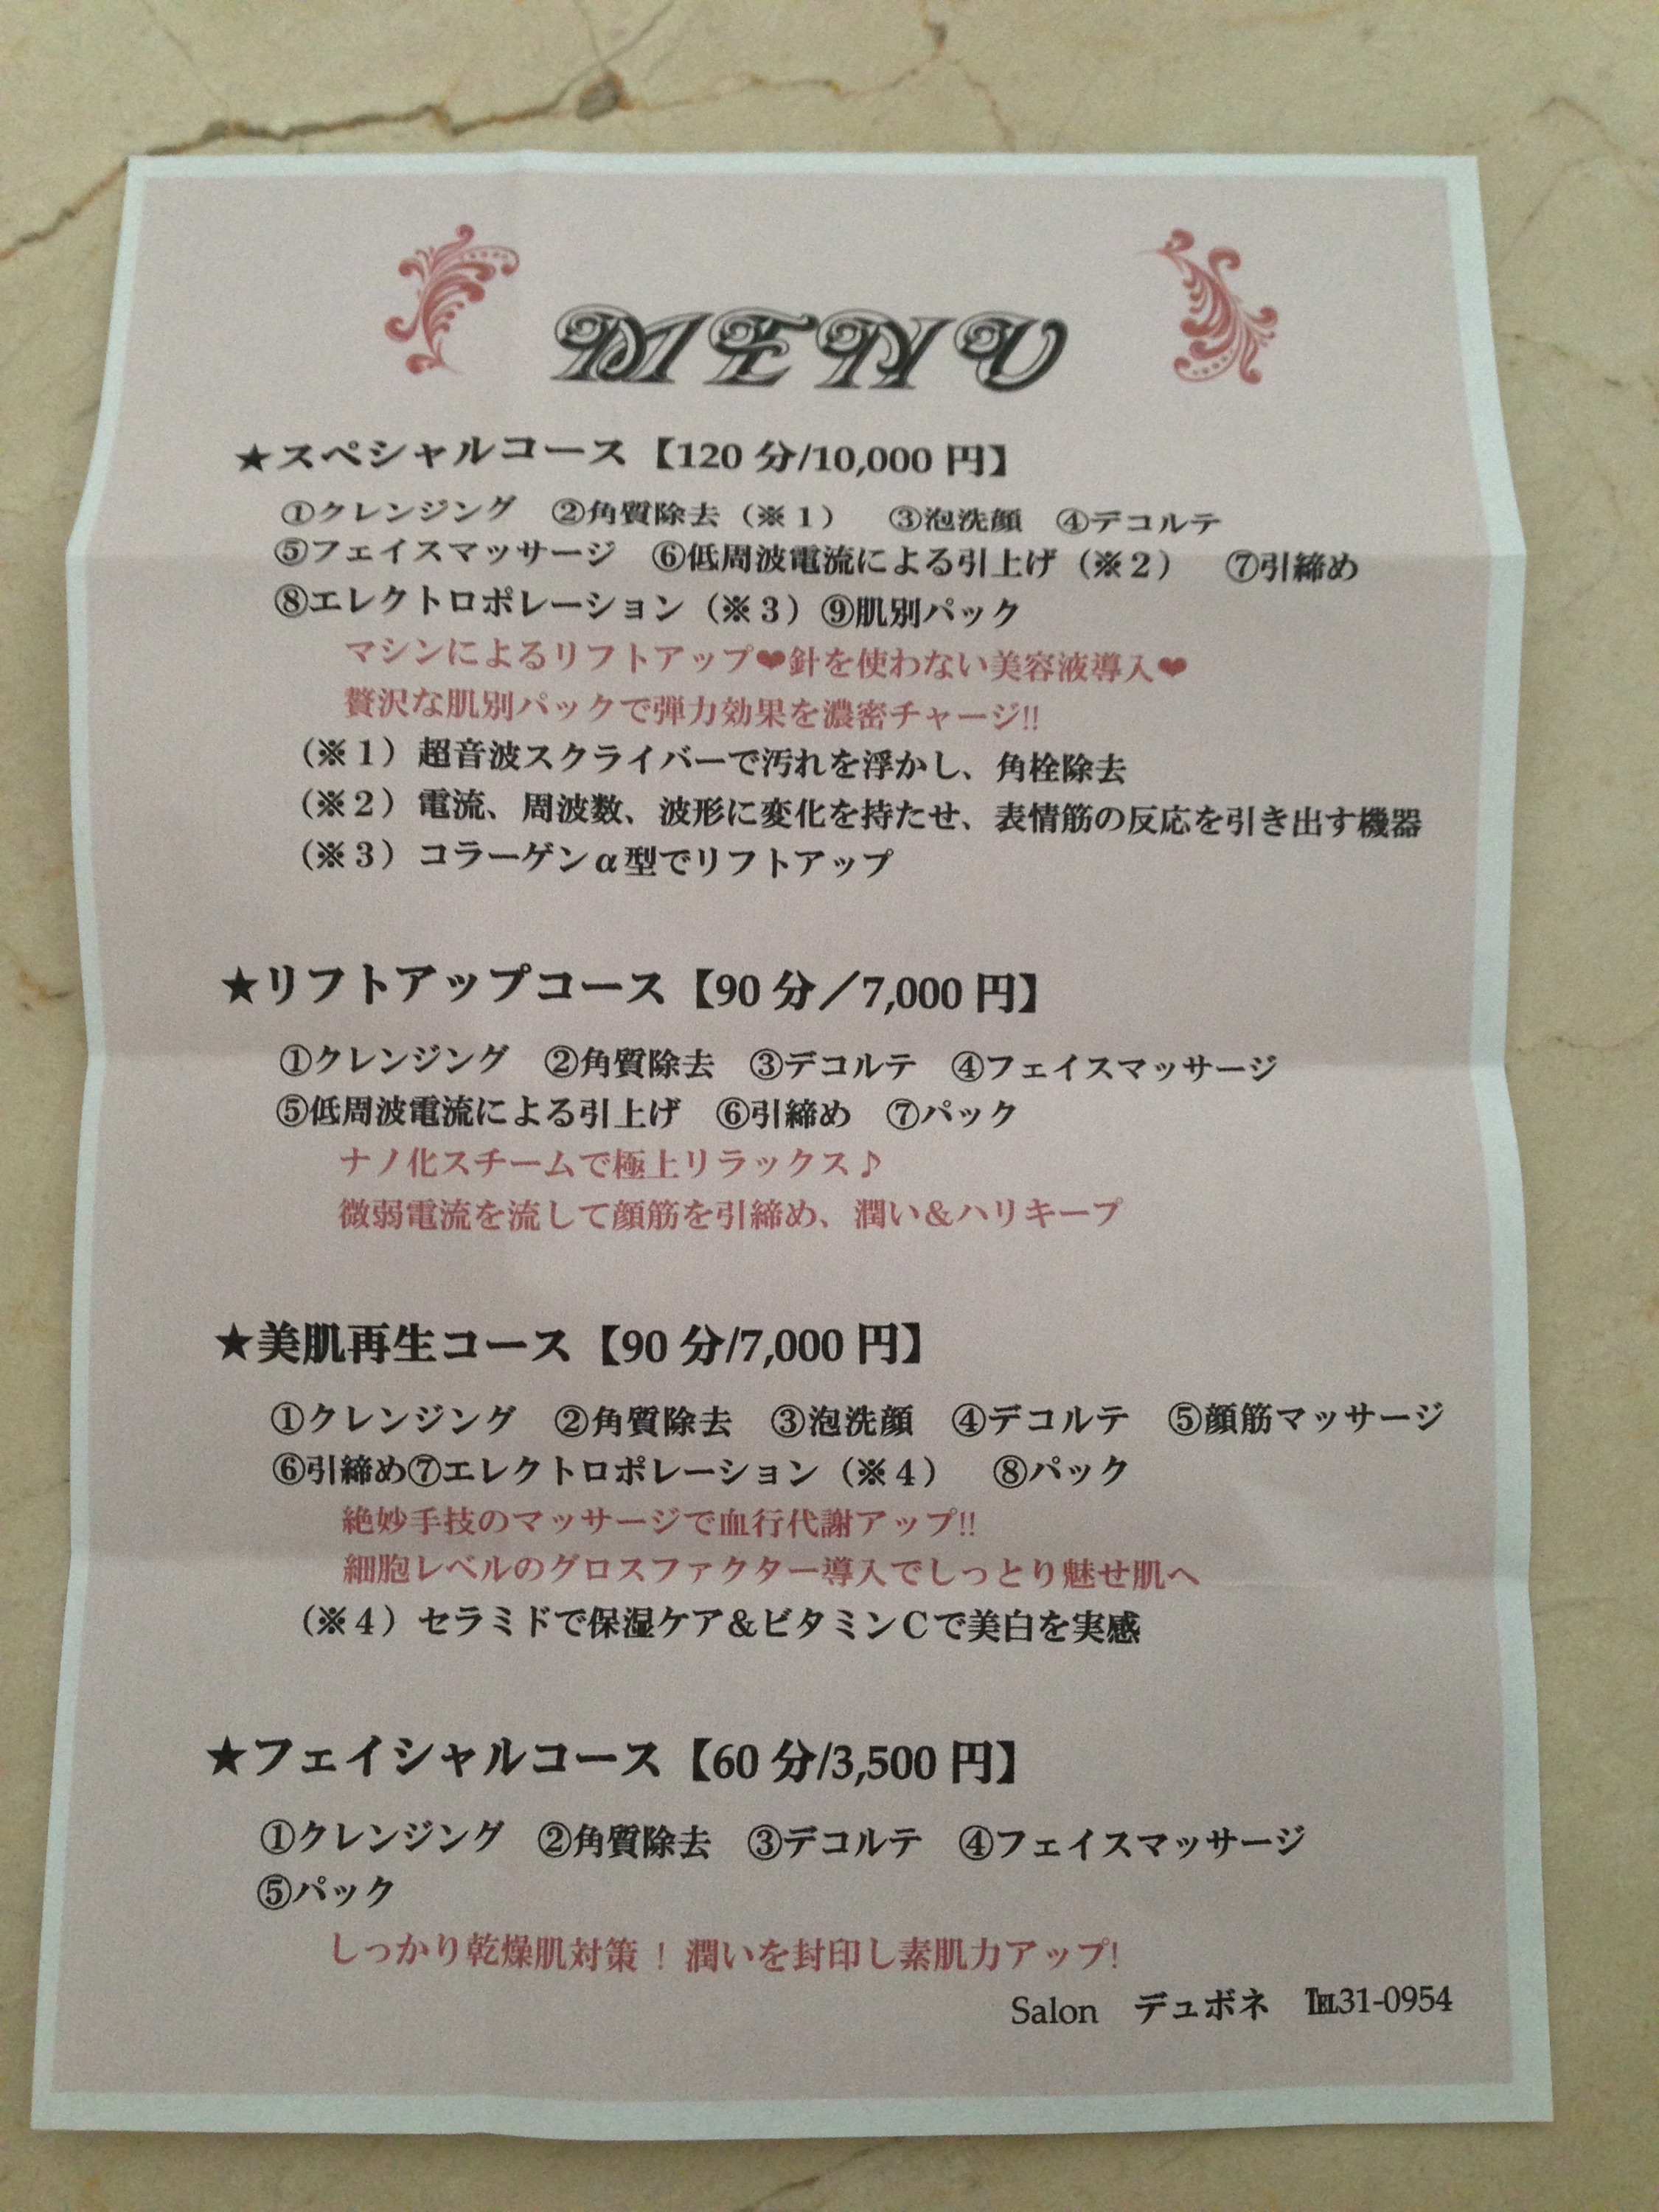 MENU
★スペシャルコース【120 分/10,000 円】
①クレンジング　②角質除去（※１）　③泡洗顔　④デコルテ
⑤フェイスマッサージ　⑥低周波電流による引上げ（※２）　⑦引締め
⑧エレクトロポレーション（※３）⑨肌別パック
マシンによるリフトアップ❤針を使わない美容液導入❤
贅沢な肌別パックで弾力効果を濃密チャージ!!
（※１）超音波スクライバーで汚れを浮かし、角栓除去
（※２）電流、周波数、波形に変化を持たせ、表情筋の反応を引き出す機器
（※３）コラーゲンα型でリフトアップ
★リフトアップコース【90 分／7,000 円】
①クレンジング　②角質除去　③デコルテ　④フェイスマッサージ
⑤低周波電流による引上げ　⑥引締め　⑦パック
ナノ化スチームで極上リラックス♪
微弱電流を流して顔筋を引締め、潤い＆ハリキープ
★美肌再生コース【90 分/7,000 円】
①クレンジング　②角質除去　③泡洗顔　④デコルテ　⑤顔筋マッサージ
⑥引締め⑦エレクトロポレーション（※４）　⑧パック
絶妙手技のマッサージで血行代謝アップ!!
細胞レベルのグロスファクター導入でしっとり魅せ肌へ
（※４）セラミドで保湿ケア＆ビタミンＣで美白を実感
★フェイシャルコース【60 分/3,500 円】
①クレンジング　②角質除去　③デコルテ　④フェイスマッサージ
⑤パック
しっかり乾燥肌対策！潤いを封印し素肌力アップ!
Salon　デュボネ　℡31-0954